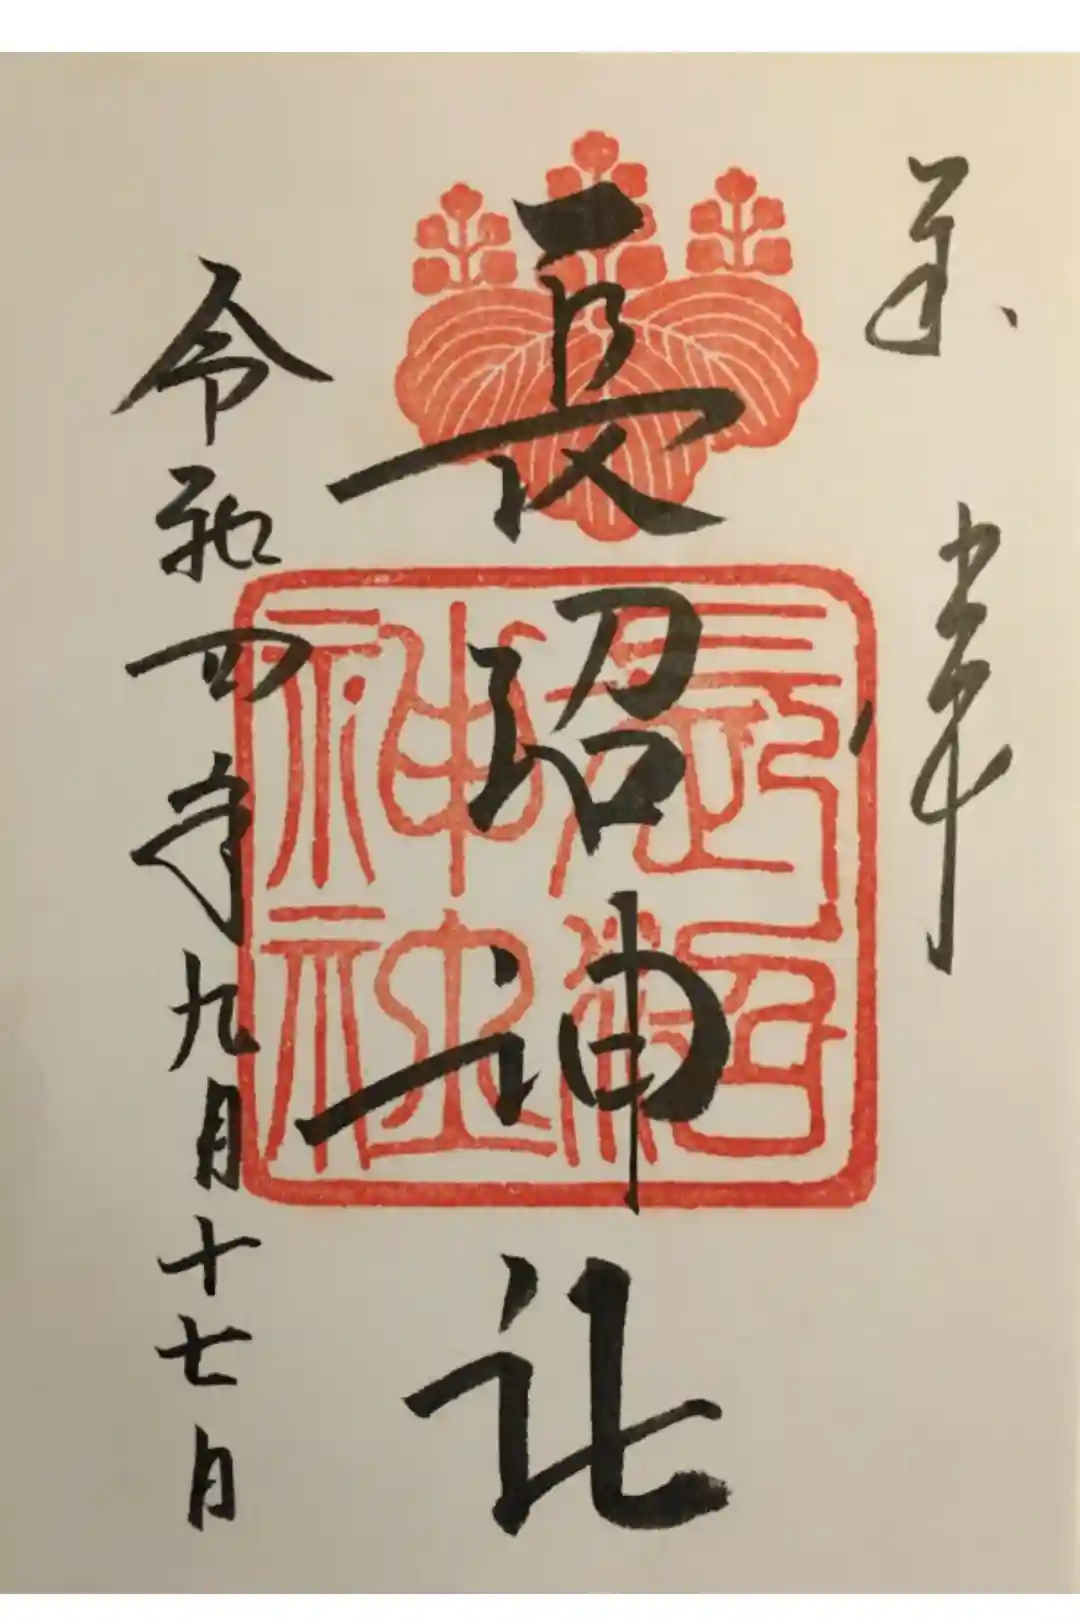 奉拝
長沼神社
長沼
神社
令和四年九月十七日